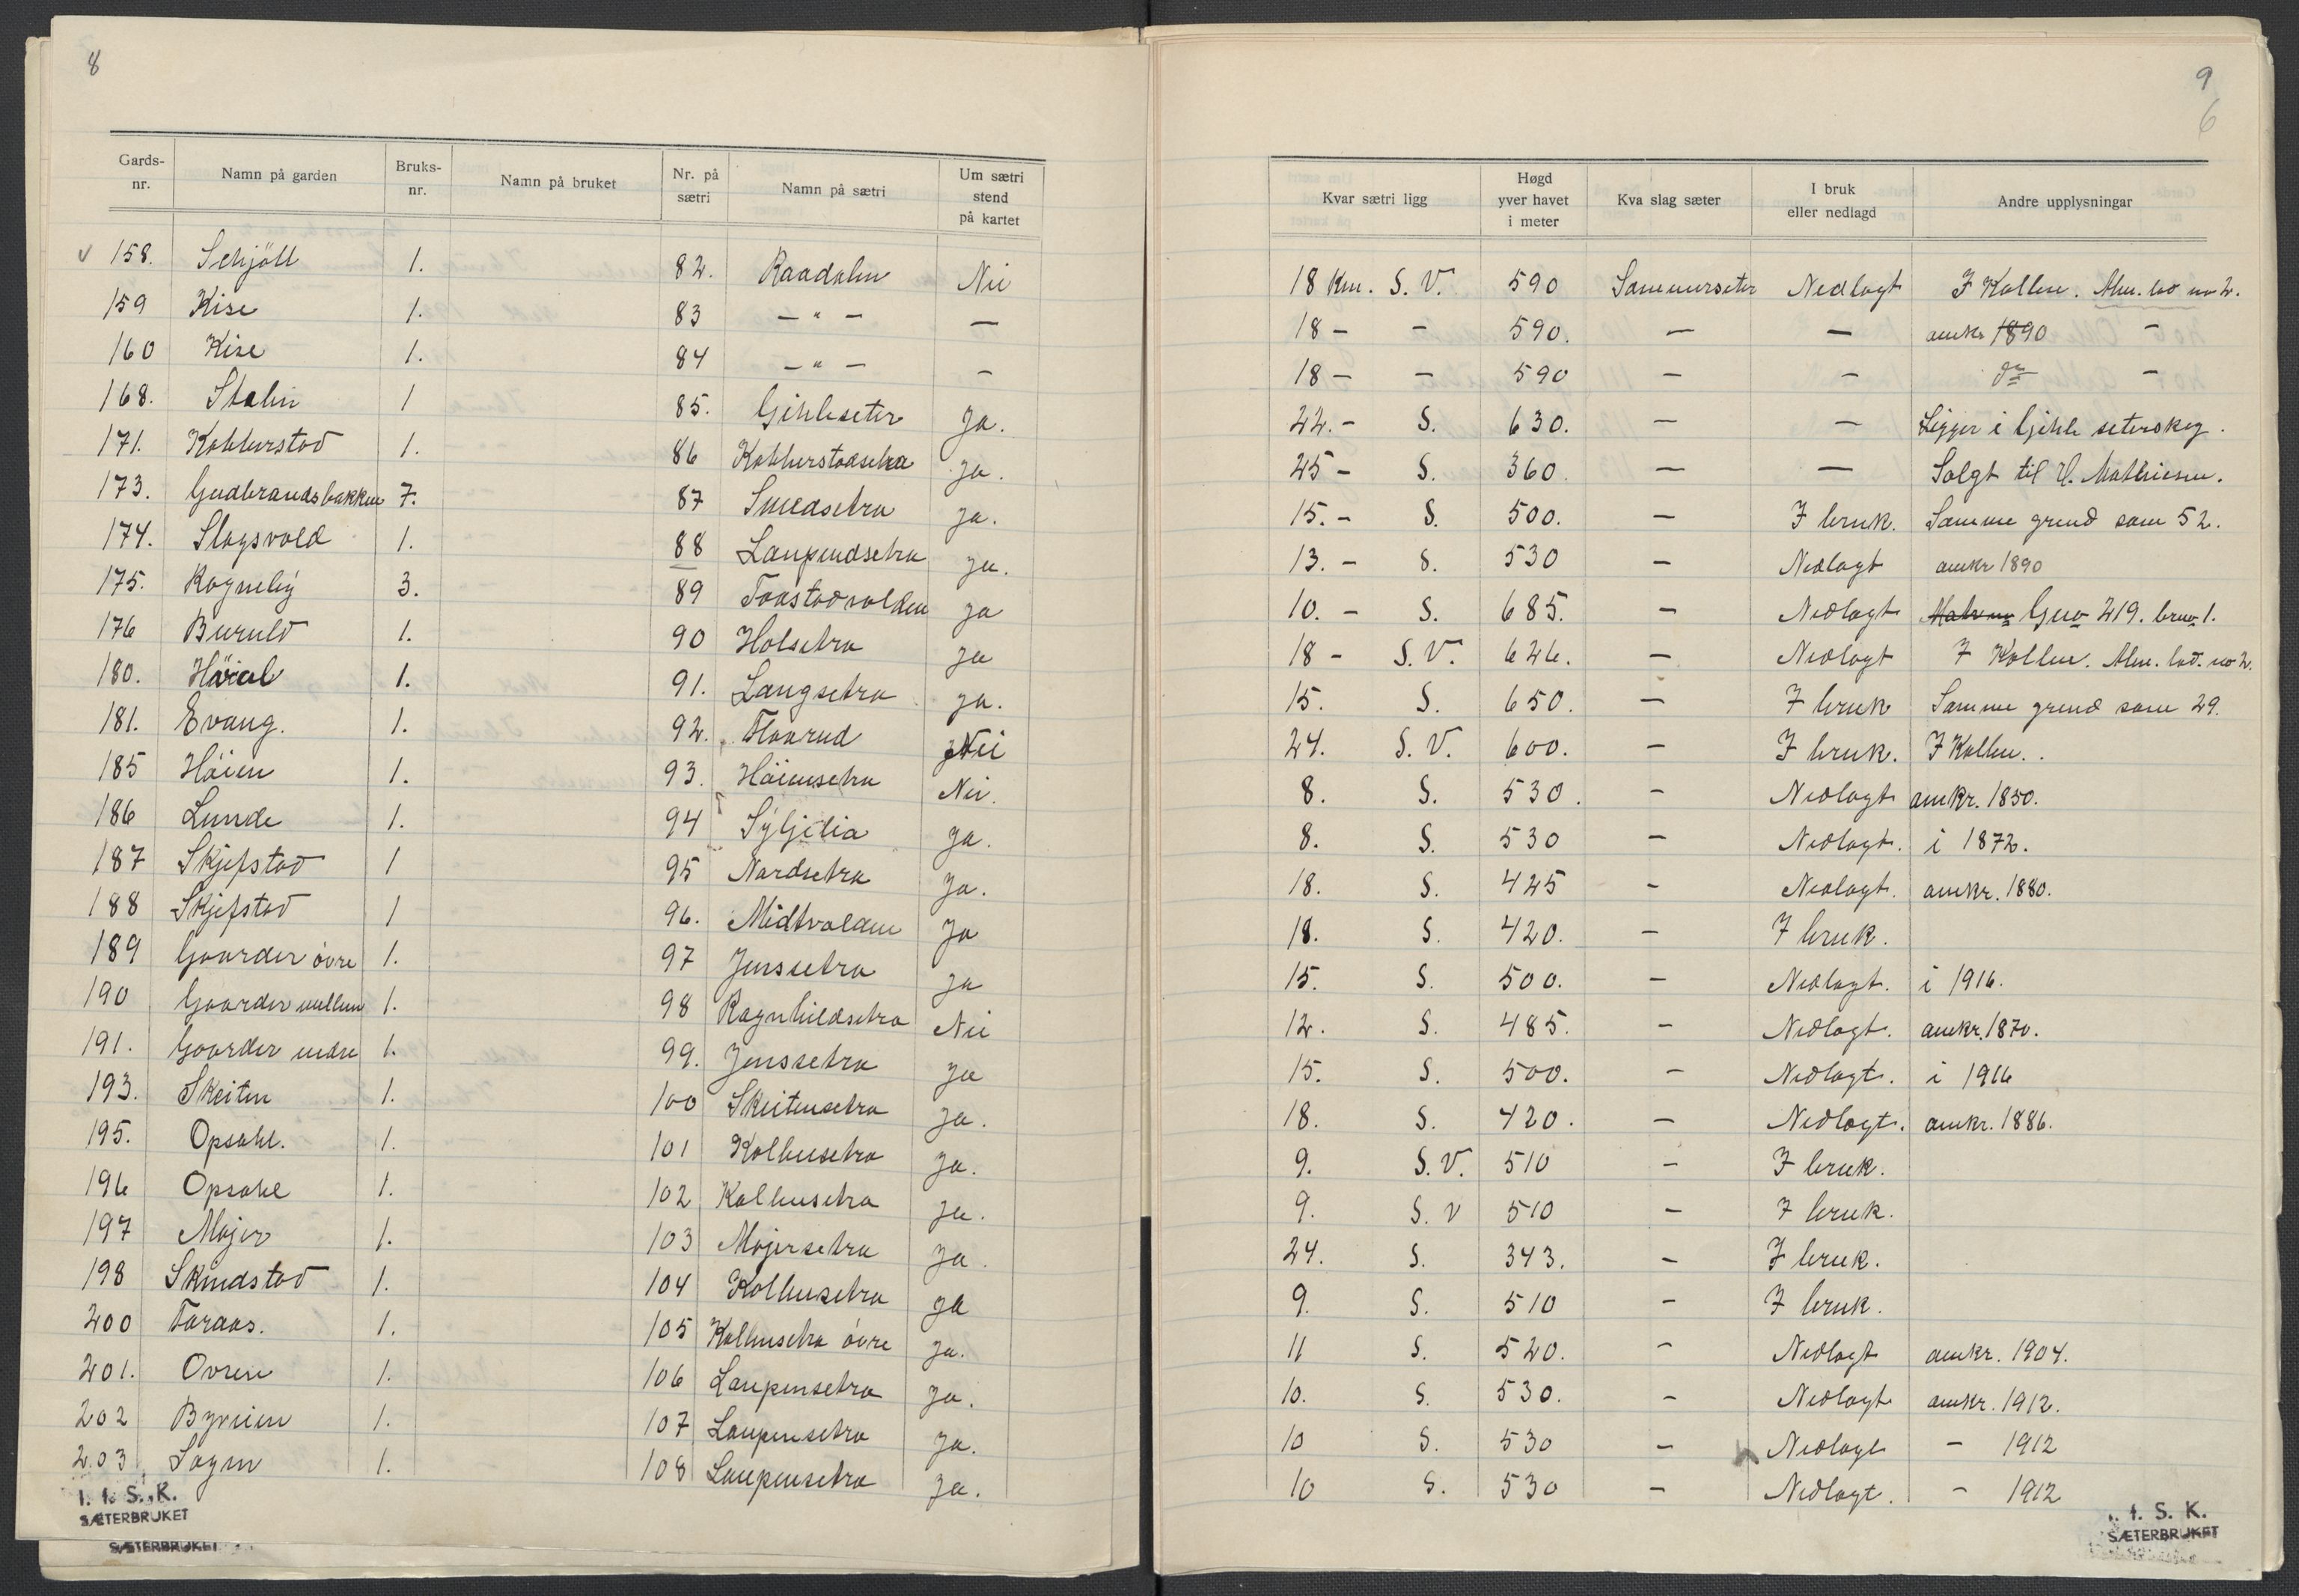 8
Gards-nr. Namn på garden Bruks-nr. Namn på bruket Nr. på sætri Namn på sætri Um sætri stend på kartet
√ 158. Schjöll 1. 82. Raadalen Nei
159 Kise 1. 83 — " — —
160 Kise 1. 84 — " — —
168. Stalin 1 85. Gihleseter Ja.
171. Kobberstad 1. 86 Kobberstadsetra Ja.
173. Gudbrandsbakken 7. 87 Smedsetra Ja.
174. Slagsvold 1. 88 Laupendsetra Ja.
175. Rognebÿ 3. 89 Taastadvolden Ja
176 Buruld 1. 90 Holsetra Ja
180. 1. 91. Langsetra Ja.
181. Evang. 1. 92. Flaarud Nei
185 Höien 1. 93. Höiensetra Nei.
186 Lunde 1. 94 Syljelia Ja.
187 Skjefstad 1 95 Nordsetra Ja.
188 Skjefstad 1 96. Midtvolden Ja
189 Gaarder övre 1. 97 Jenssetra Ja
190 Gaarder mellem 1. 98 Ragnhildsetra Nei
191. Gaarder nedre 1. 99. Jenssetra Ja
193. Skeiten 1. 100 Skeitensetra Ja.
195. Opsahl. 1. 101 Kolbusetra Ja.
196 Opsahl 1. 102 Kolbusetra Ja.
197 Majer 1. 103 Majersetra Ja.
198 Skindstad 1. 104 Kolbusetra Ja
200 Taraas. 1. 105 Kolbusetra övre Ja.
201. Ovren 1. 106 Laupensetra Ja.
202 1. 107 Laupensetra Ja.
203 Sogn 1. 108 Laupensetra Ja.
I. f. S. K.
SÆTERBRUKET
SÆTERBRUKET
9
6
Kvar sætri ligg Høgd yver havet i meter Kva slag sæter I bruk eller nedlagd Andre upplysningar
18 Km. S. V. 590 Sommerseter Nedlagt I Kollen. Alm. lod no 2.
18 — — 590. — — omkr 1890 —
18 — — 590 — — do —
22. — S. 630. — — Ligger i Gihle seterskog.
25 — S. 360. — — Solgt til H. Mathiesen.
15. — S. 500. — I bruk. Samme grend som 52.
13. — S. 530 — Nedlagt omkr 1890
10. — S. 685. — Nedlagt Gno 219. bruno 1.
18 — S. V. 626. — Nedlagt I Kollen. Alm. lod. no 2.
15. S. 650. — I bruk Samme grend som 29.
24. S. V. 600. — I bruk. I Kollen..
8. S. 530. — Nedlagt omkr. 1850.
8. S. 530 — Nedlagt. i 1872.
18. S. 425 — Nedlagt. omkr. 1880.
18. S. 420. — I bruk.
15. S. 500. — Nedlagt. i 1916.
12. S. 485. — Nedlagt. omkr. 1870.
15. S. 500. — Nedlagt. i 1916
18. S. 420. — Nedlagt. omkr. 1886.
9. S. V. 510 — I bruk.
9. S. V 510 — I bruk.
24. S. 343. — I bruk.
9. S. 510 — I bruk.
11 S. 520. — Nedlagt omkr. 1904.
10. S. 530. — Nedlagt omkr. 1912.
10 S. 530 — Nedlagt — 1912
10 S. 530 — Nedlagt. — 1912
I. f. S. K.
SÆTERBRUKET